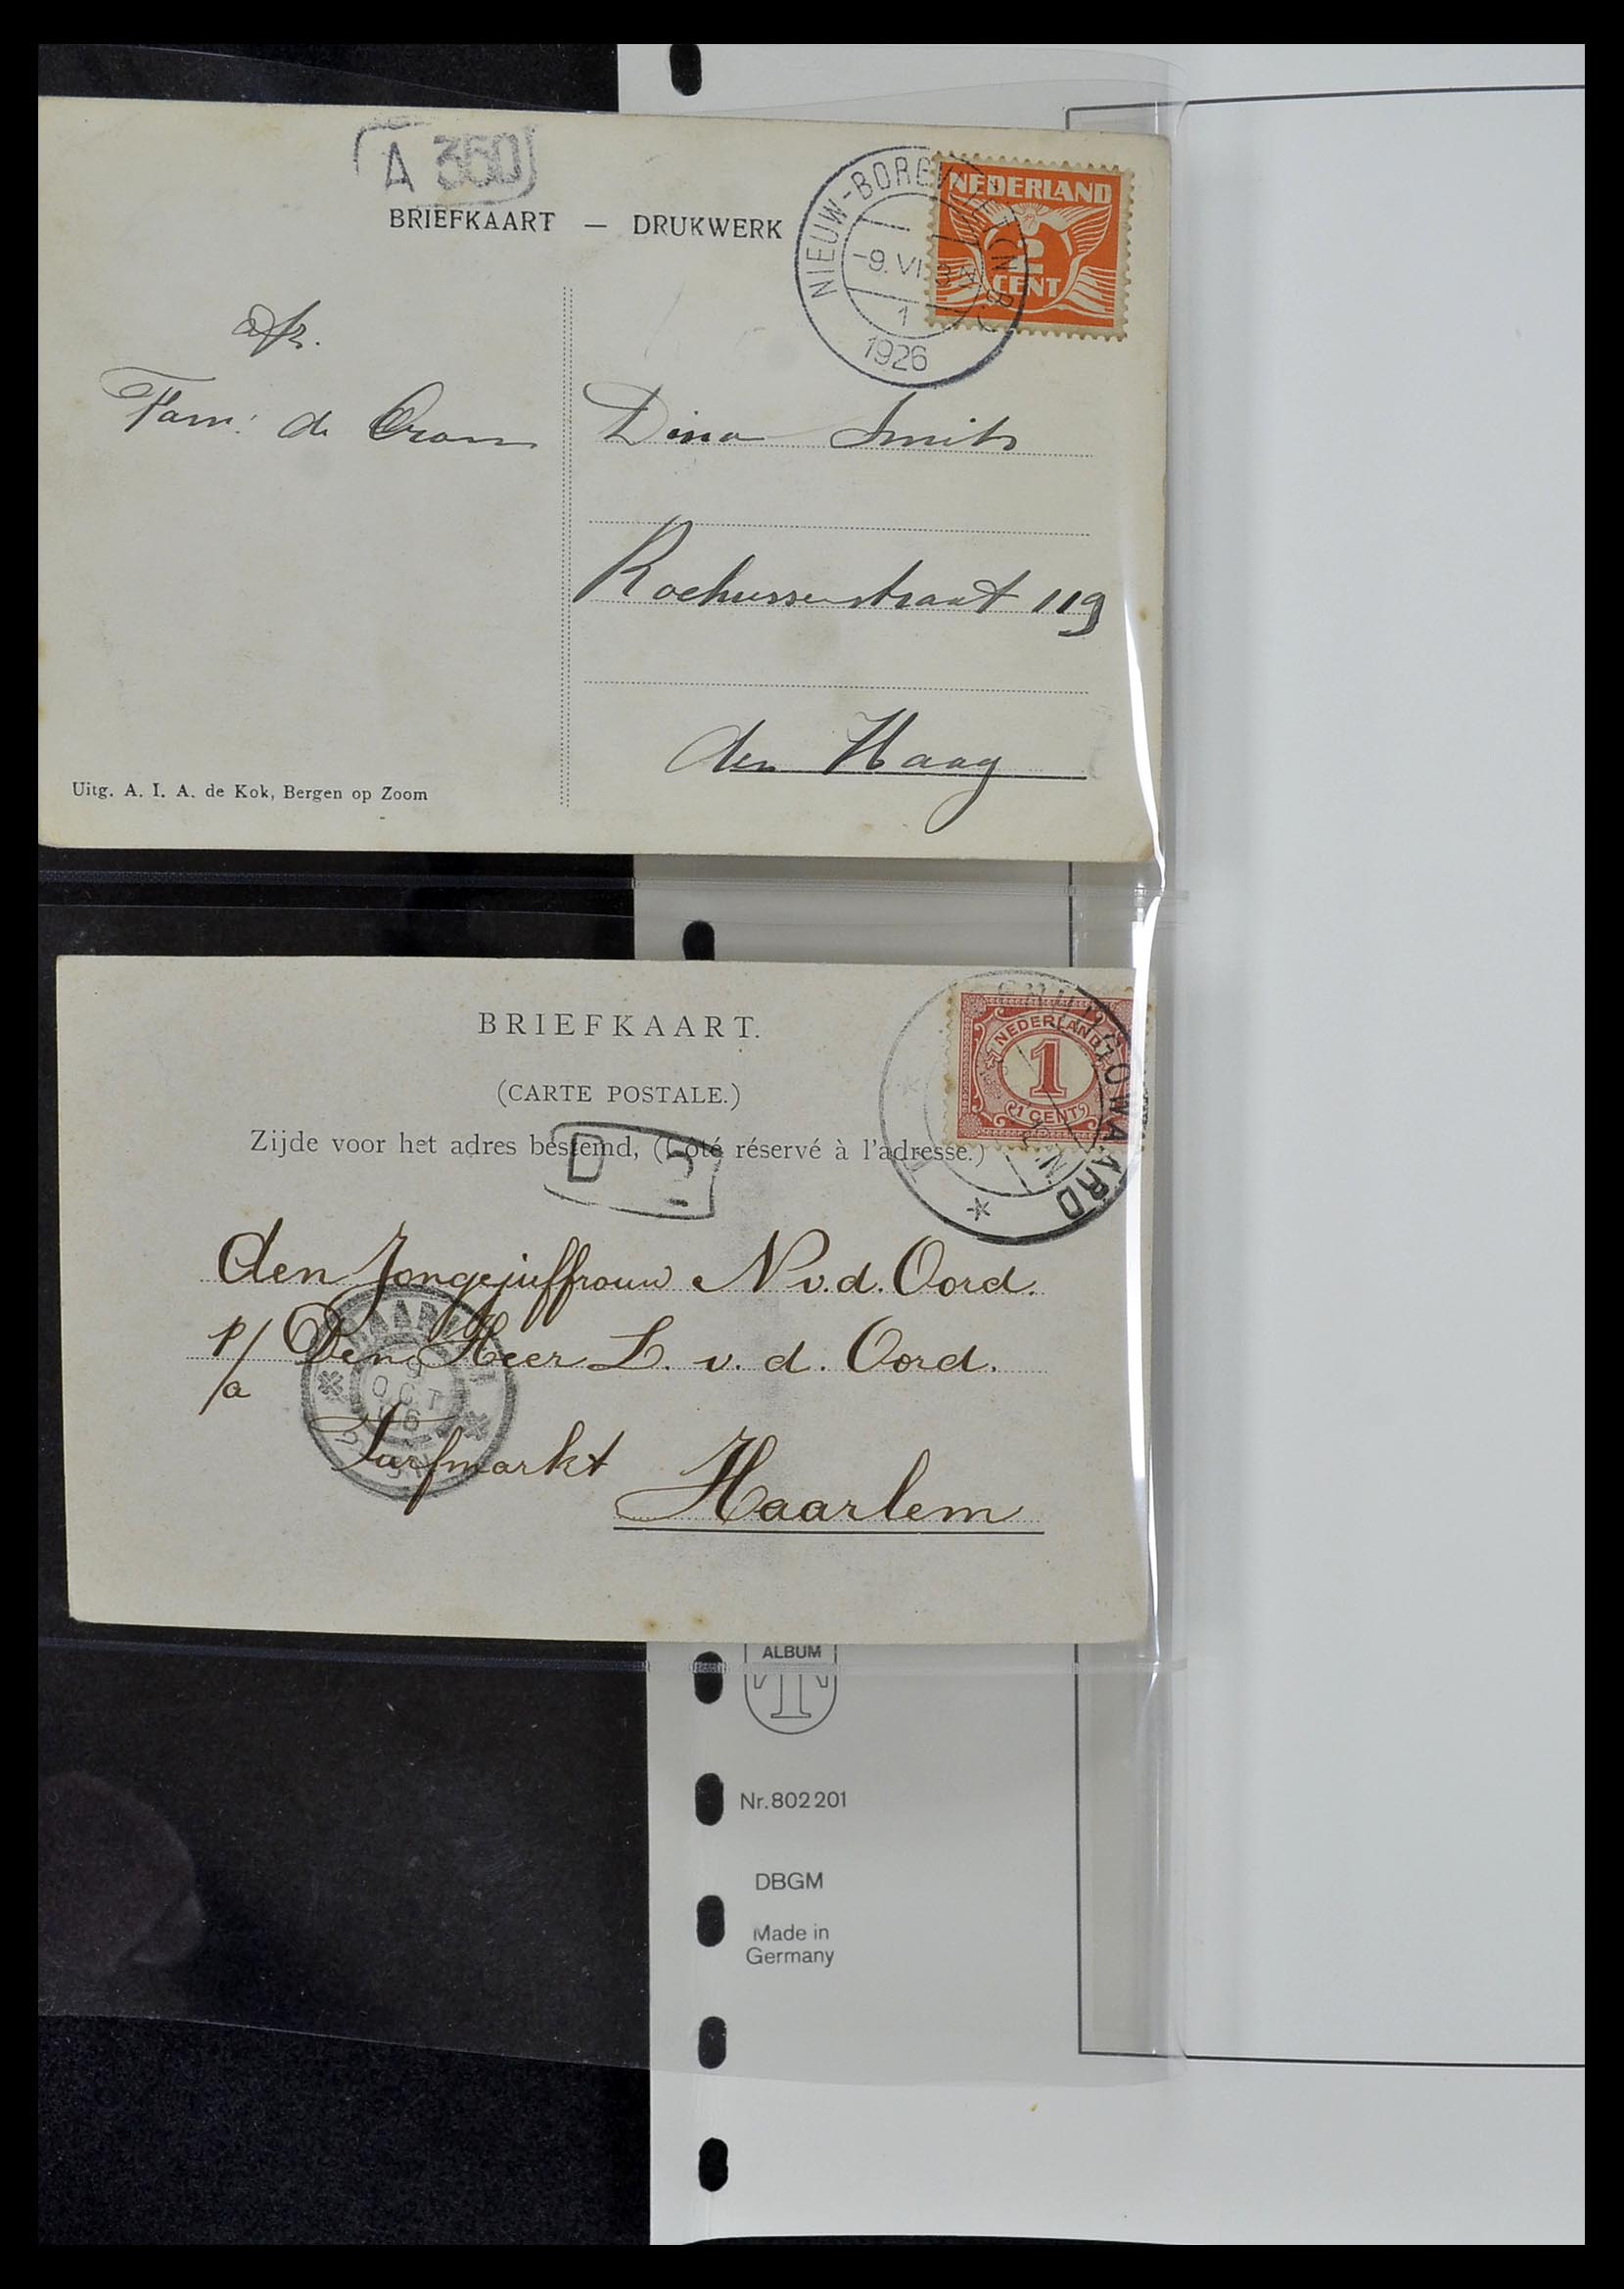 A 350
BRIEFKAART — DRUKWERK
NEDERLAND
2
CENT
NIEUW-BORGV
-9.VI
1
1926
afz.
Fam: de
Dina Smits
Rochussenstraat 119
den Haag
Uitg. A. I. A. de Kok, Bergen op Zoom
BRIEFKAART.
(CARTE POSTALE.)
Zijde voor het adres bestemd, (Côté réservé à l'adresse.)
NEDERLAND
1
1 CENT
D
den Jongejuffrouw N v. d. Oord.
p/a Den Heer L. v. d. Oord.
OCT
06
Turfmarkt
Haarlem
ALBUM
T
Nr. 802 201
DBGM
Made in
Germany